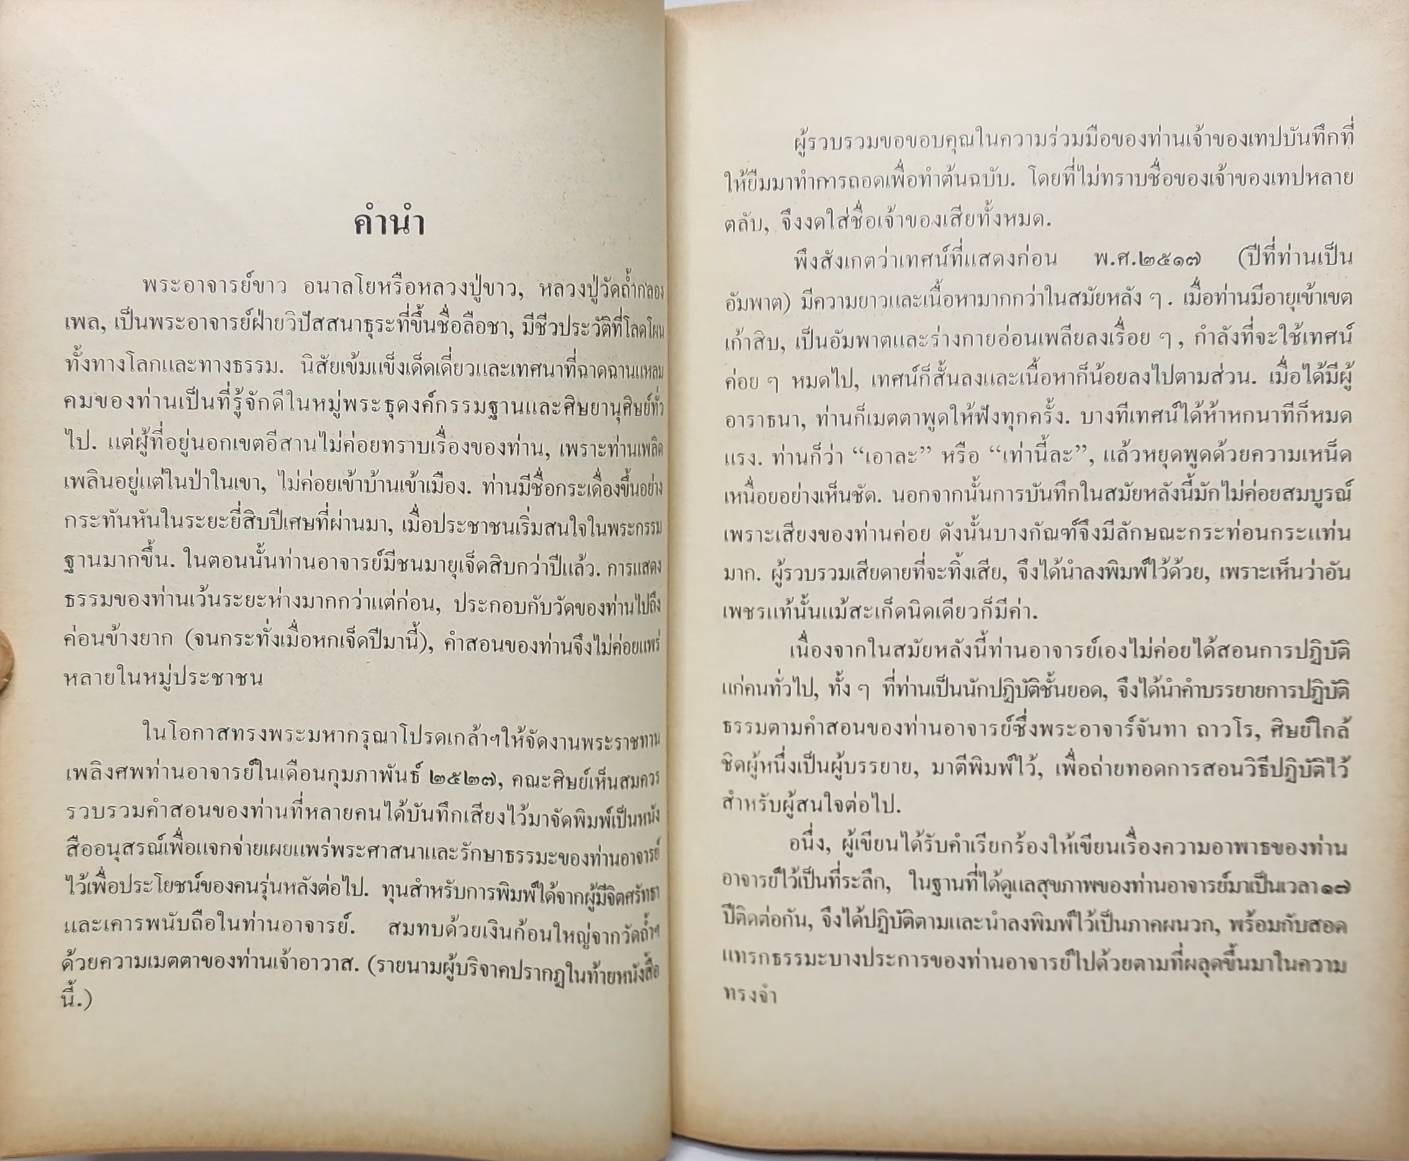 คำนำ
พระอาจารย์ขาว อนาลโยหรือหลวงปู่ขาว, หลวงปู่วัดถ้ำกลอง
เพล, เป็นพระอาจารย์ฝ่ายวิปัสสนาธุระที่ขึ้นชื่อลือชา, มีชีวประวัติที่โลดโผน
ทั้งทางโลกและทางธรรม. นิสัยเข้มแข็งเด็ดเดี่ยวและเทศนาที่ฉาดฉานแหลม
คมของท่านเป็นที่รู้จักดีในหมู่พระธุดงค์กรรมฐานและศิษยานุศิษย์ทั่ว
ไป. แต่ผู้ที่อยู่นอกเขตอีสานไม่ค่อยทราบเรื่องของท่าน, เพราะท่านเพลิด
เพลินอยู่แต่ในป่าในเขา, ไม่ค่อยเข้าบ้านเข้าเมือง. ท่านมีชื่อกระเดื่องขึ้นอย่าง
กระทันหันในระยะยี่สิบปีเศษที่ผ่านมา, เมื่อประชาชนเริ่มสนใจในพระกรรม
ฐานมากขึ้น. ในตอนนั้นท่านอาจารย์มีชนมายุเจ็ดสิบกว่าปีแล้ว. การแสดง
ธรรมของท่านเว้นระยะห่างมากกว่าแต่ก่อน, ประกอบกับวัดของท่านไปถึง
ค่อนข้างยาก (จนกระทั่งเมื่อหกเจ็ดปีมานี้), คำสอนของท่านจึงไม่ค่อยแพร่
หลายในหมู่ประชาชน
ในโอกาสทรงพระมหากรุณาโปรดเกล้าฯให้จัดงานพระราชทาน
เพลิงศพท่านอาจารย์ในเดือนกุมภาพันธ์ ๒๕๒๗, คณะศิษย์เห็นสมควร
รวบรวมคำสอนของท่านที่หลายคนได้บันทึกเสียงไว้มาจัดพิมพ์เป็นหนัง
สืออนุสรณ์เพื่อแจกจ่ายเผยแพร่พระศาสนาและรักษาธรรมะของท่านอาจารย์
ไว้เพื่อประโยชน์ของคนรุ่นหลังต่อไป. ทุนสำหรับการพิมพ์ได้จากผู้มีจิตศรัทธา
และเคารพนับถือในท่านอาจารย์. สมทบด้วยเงินก้อนใหญ่จากวัดถ้ำฯ
ด้วยความเมตตาของท่านเจ้าอาวาส. (รายนามผู้บริจาคปรากฏในท้ายหนังสือ
นี้.)
ผู้รวบรวมขอขอบคุณในความร่วมมือของท่านเจ้าของเทปบันทึกที่
ให้ยืมมาทำการถอดเพื่อทำต้นฉบับ. โดยที่ไม่ทราบชื่อของเจ้าของเทปหลาย
ตลับ, จึงงดใส่ชื่อเจ้าของเสียทั้งหมด.
พึงสังเกตว่าเทศน์ที่แสดงก่อน พ.ศ.๒๕๑๗ (ปีที่ท่านเป็น
อัมพาต) มีความยาวและเนื้อหามากกว่าในสมัยหลัง ๆ. เมื่อท่านมีอายุเข้าเขต
เก้าสิบ, เป็นอัมพาตและร่างกายอ่อนเพลียลงเรื่อย ๆ, กำลังที่จะใช้เทศน์
ค่อย ๆ หมดไป, เทศน์ก็สั้นลงและเนื้อหาก็น้อยลงไปตามส่วน. เมื่อได้มีผู้
อาราธนา, ท่านก็เมตตาพูดให้ฟังทุกครั้ง. บางทีเทศน์ได้ห้าหกนาทีก็หมด
แรง. ท่านก็ว่า “เอาละ” หรือ “เท่านี้ละ”, แล้วหยุดพูดด้วยความเหน็ด
เหนื่อยอย่างเห็นชัด. นอกจากนั้นการบันทึกในสมัยหลังนี้มักไม่ค่อยสมบูรณ์
เพราะเสียงของท่านค่อย ดังนั้นบางกัณฑ์จึงมีลักษณะกระท่อนกระแท่น
มาก. ผู้รวบรวมเสียดายที่จะทิ้งเสีย, จึงได้นำลงพิมพ์ไว้ด้วย, เพราะเห็นว่าอัน
เพชรแท้นั้นแม้สะเก็ดนิดเดียวก็มีค่า.
เนื่องจากในสมัยหลังนี้ท่านอาจารย์เองไม่ค่อยได้สอนการปฏิบัติ
แก่คนทั่วไป, ทั้ง ๆ ที่ท่านเป็นนักปฏิบัติชั้นยอด, จึงได้นำคำบรรยายการปฏิบัติ
ธรรมตามคำสอนของท่านอาจารย์ซึ่งพระอาจาร์จันทา ถาวโร, ศิษย์ใกล้
ชิดผู้หนึ่งเป็นผู้บรรยาย, มาตีพิมพ์ไว้, เพื่อถ่ายทอดการสอนวิธีปฏิบัติไว้
สำหรับผู้สนใจต่อไป.
อนึ่ง, ผู้เขียนได้รับคำเรียกร้องให้เขียนเรื่องความอาพาธของท่าน
อาจารย์ไว้เป็นที่ระลึก, ในฐานที่ได้ดูแลสุขภาพของท่านอาจารย์มาเป็นเวลา๑๗
ปีติดต่อกัน, จึงได้ปฏิบัติตามและนำลงพิมพ์ไว้เป็นภาคผนวก, พร้อมกับสอด
แทรกธรรมะบางประการของท่านอาจารย์ไปด้วยตามที่ผลุดขึ้นมาในความ
ทรงจำ